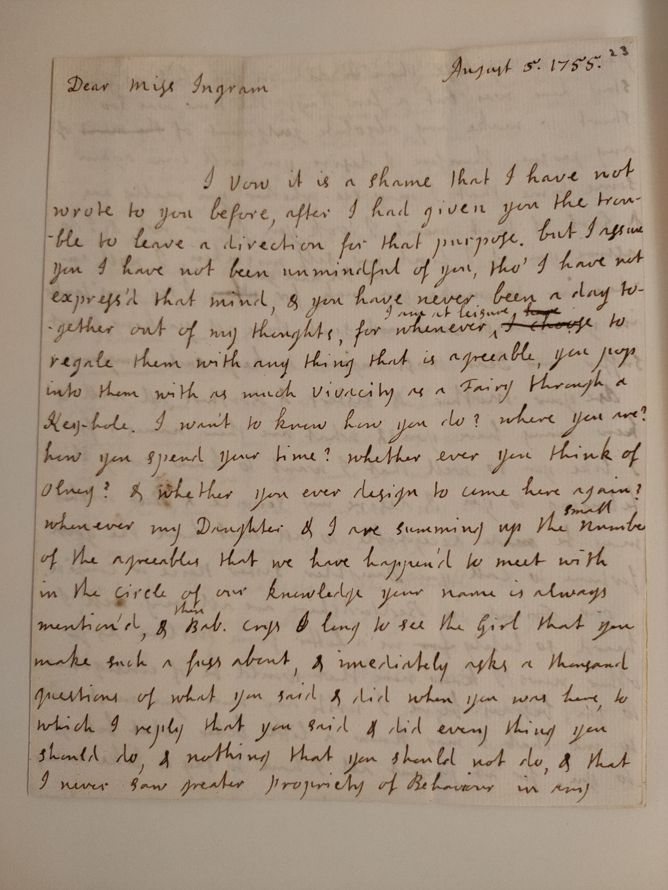 23
August 5. 1755.
Dear Miss Ingram
I Vow it is a shame that I have not
wrote to you before, after I had given you the trou-
-ble to leave a direction for that purpose. but I assure
you I have not been unmindful of you, tho' I have not
express'd that mind, & you have never been a day to-
I am at leisure
-gether out of my thoughts, for whenever I choose to
regale them with any thing that is agreeable, you pop
into them with as much vivacity as a Fairy through a
Key-hole. I want to know how you do? where you are?
how you spend your time? whether ever you think of
Olney? & whether you ever design to come here again?
small
whenever my Daughter & I are summing up the number
of the agreeables that we have happen'd to meet with
in the circle of our knowledge your name is always
then
mention'd, & Bab. crys I long to see the Girl that you
make such a fuss about, & imediately asks a thousand
questions of what you said & did when you was here, to
which I reply that you said & did every thing you
should do, & nothing that you should not do, & that
I never saw greater propriety of Behaviour in any